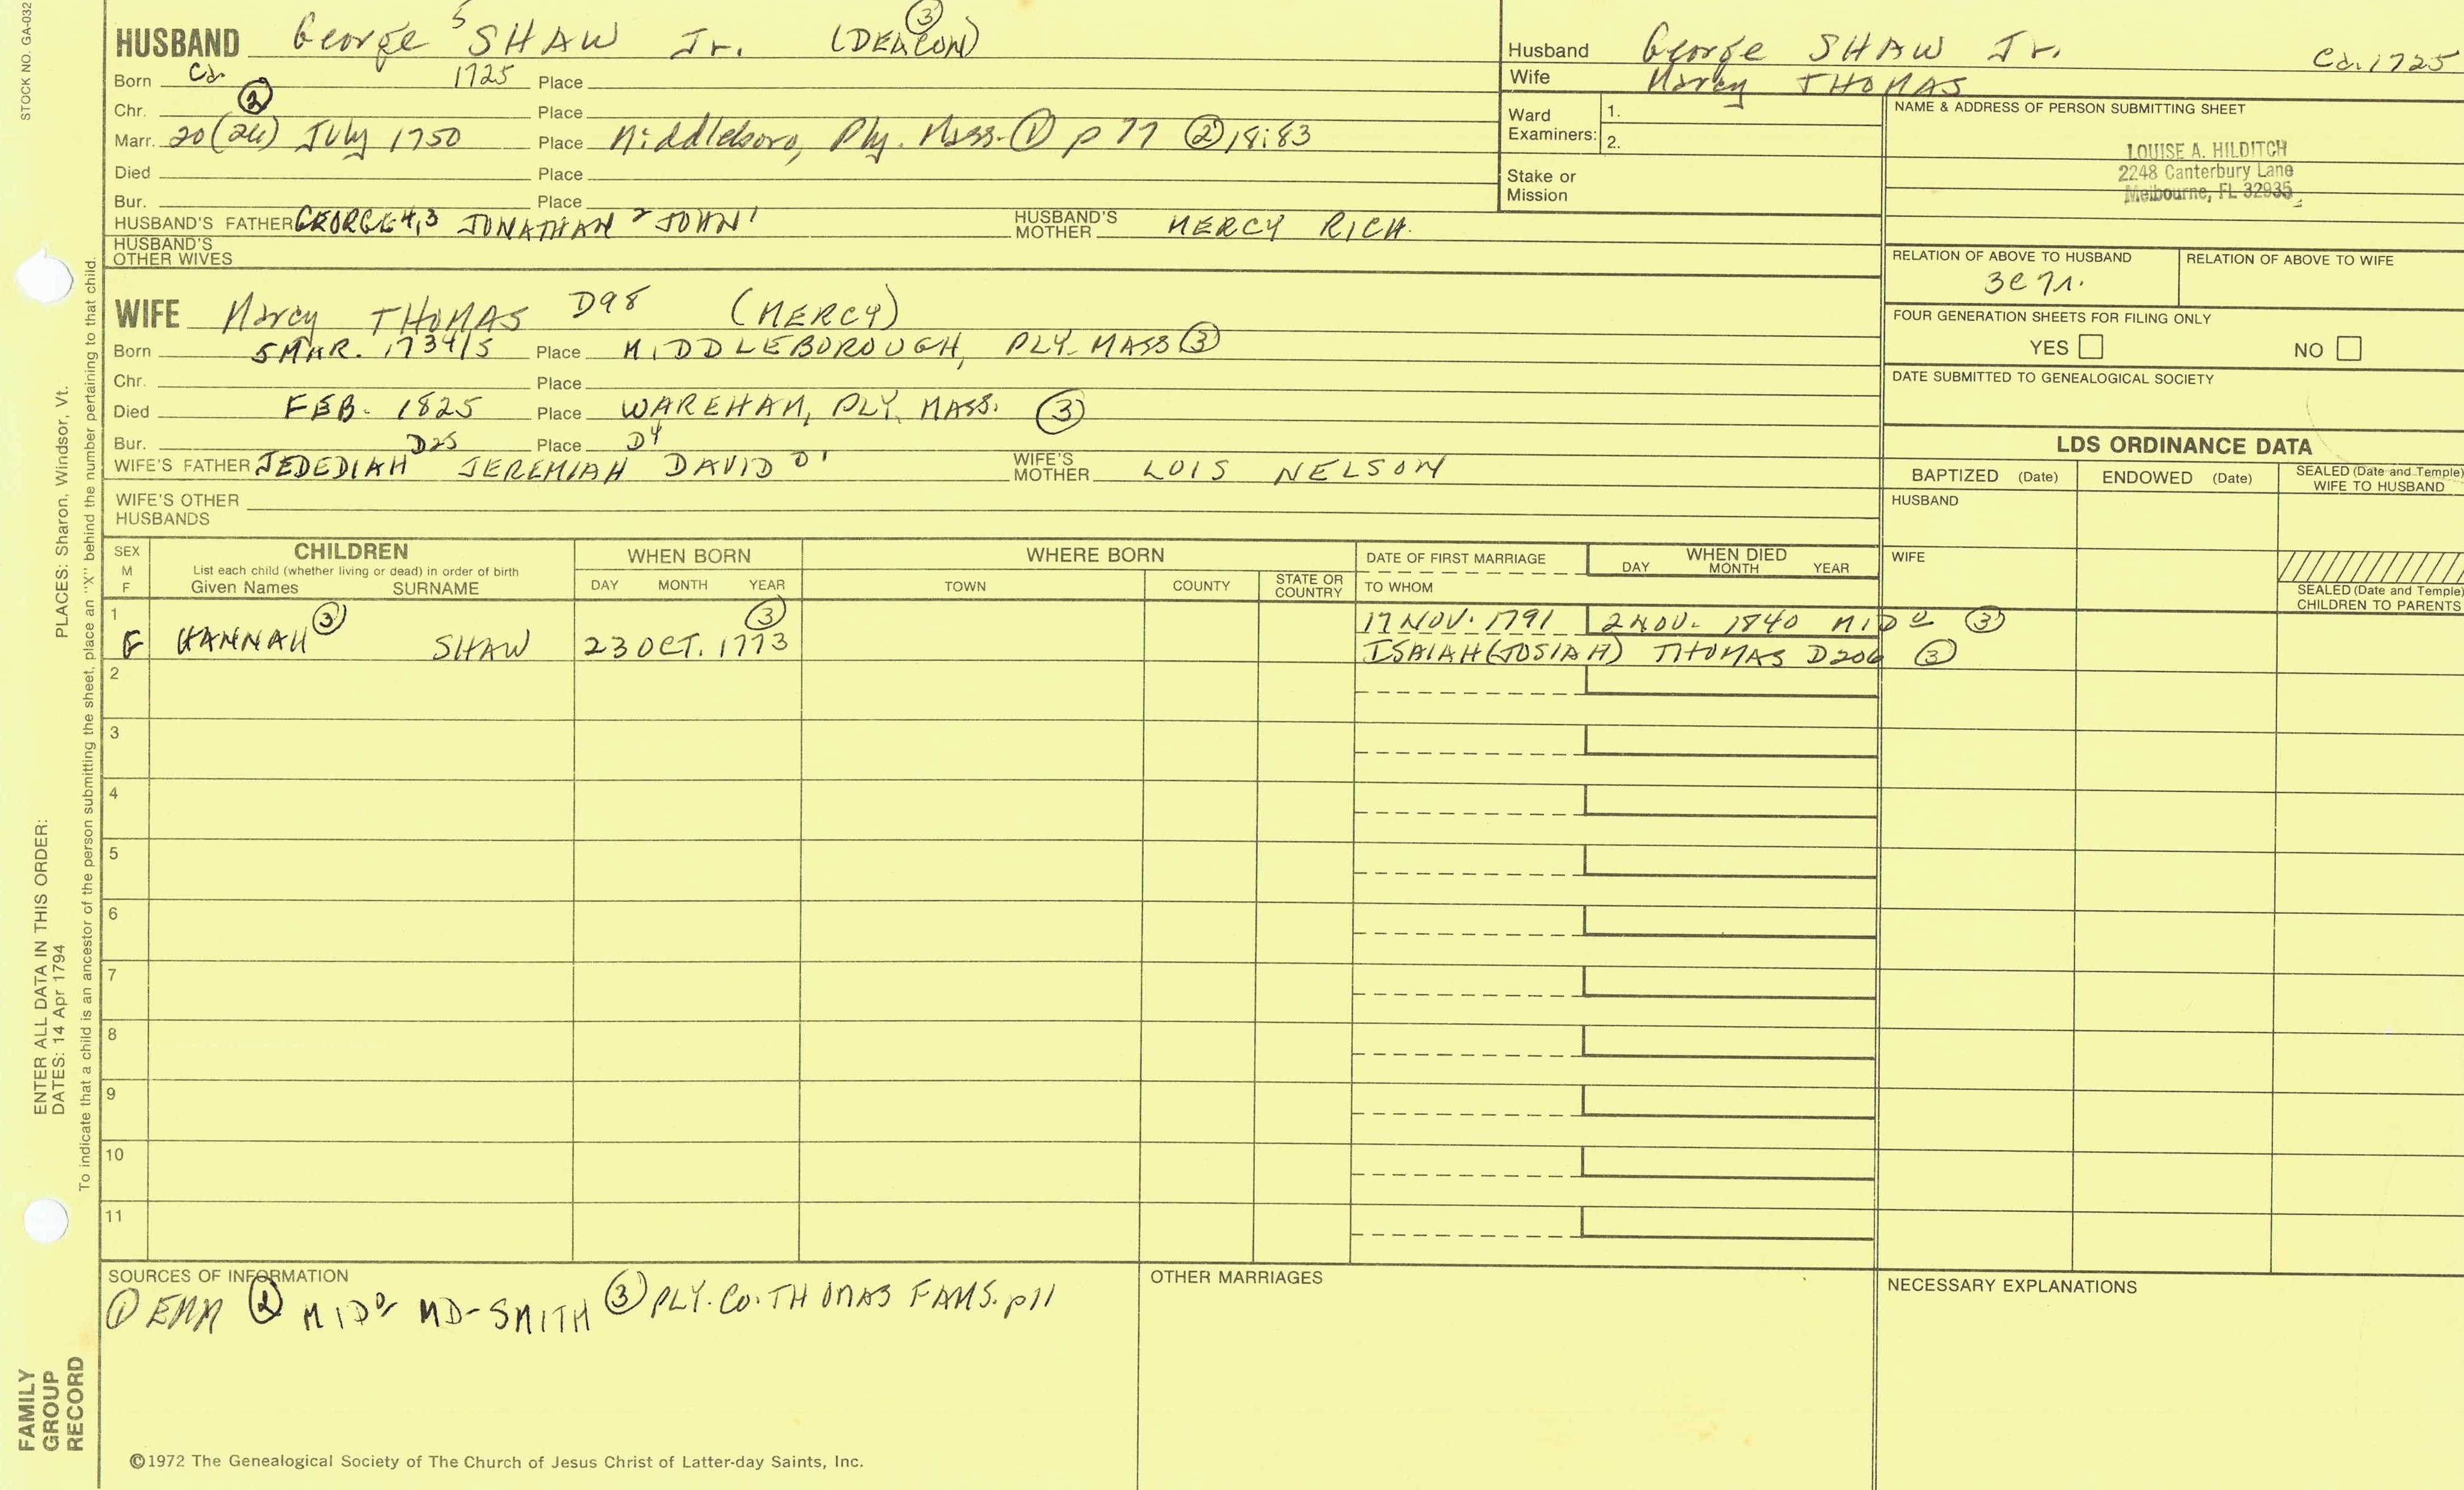 STOCK NO. GA-032
HUSBAND George 5 SHAW Jr. (DEACON) ③
Born Ca. 1725 Place
Chr. ② Place
Marr. 20(26) July 1750 Place Middleboro, Ply. Mass. ① p 77 ② 18:83
Died Place
Bur. Place
HUSBAND'S FATHER GEORGE 4,3 JONATHAN 2 JOHN 1 HUSBAND'S MOTHER MERCY RICH.
HUSBAND'S OTHER WIVES
Husband George SHAW Jr. Ca. 1725
Wife Marcy THOMAS
Ward Examiners: 1.
2.
Stake or Mission
NAME & ADDRESS OF PERSON SUBMITTING SHEET
LOUISE A. HILDITCH
2248 Canterbury Lane
Melbourne, FL 32935
RELATION OF ABOVE TO HUSBAND RELATION OF ABOVE TO WIFE
FOUR GENERATION SHEETS FOR FILING ONLY
YES NO
DATE SUBMITTED TO GENEALOGICAL SOCIETY
WIFE Marcy THOMAS D98 (MERCY)
Born 5 MAR. 1734/5 Place MIDDLEBOROUGH, PLY. MASS ③
Chr. Place
Died FEB. 1825 Place WAREHAM, PLY. MASS. ③
Bur. Place
WIFE'S FATHER JEDEDIAH D25 JEREMIAH D4 DAVID D1 WIFE'S MOTHER LOIS NELSON
WIFE'S OTHER HUSBANDS
LDS ORDINANCE DATA
BAPTIZED (Date) ENDOWED (Date) SEALED (Date and Temple) WIFE TO HUSBAND
HUSBAND
WIFE
SEALED (Date and Temple) CHILDREN TO PARENTS
SEX M F
CHILDREN
List each child (whether living or dead) in order of birth
Given Names SURNAME
WHEN BORN
DAY MONTH YEAR
WHERE BORN
TOWN COUNTY STATE OR COUNTRY
DATE OF FIRST MARRIAGE
TO WHOM
WHEN DIED
DAY MONTH YEAR
1 F HANNAH ③ SHAW 23 OCT. 1773 ③ 17 NOV. 1791 2 NOV. 1840 MIDo ③
ISAIAH (JOSIAH) THOMAS D206 ③
2
3
4
5
6
7
8
9
10
11
SOURCES OF INFORMATION
① EMM ② MIDo MD-SMITH ③ PLY. CO. THOMAS FAMS. p11
OTHER MARRIAGES
NECESSARY EXPLANATIONS
©1972 The Genealogical Society of The Church of Jesus Christ of Latter-day Saints, Inc.
FAMILY
GROUP
RECORD
ENTER ALL DATA IN THIS ORDER:
DATES: 14 Apr 1794
PLACES: Sharon, Windsor, Vt.
To indicate that a child is an ancestor of the person submitting the sheet, place an "X" behind the number pertaining to that child.